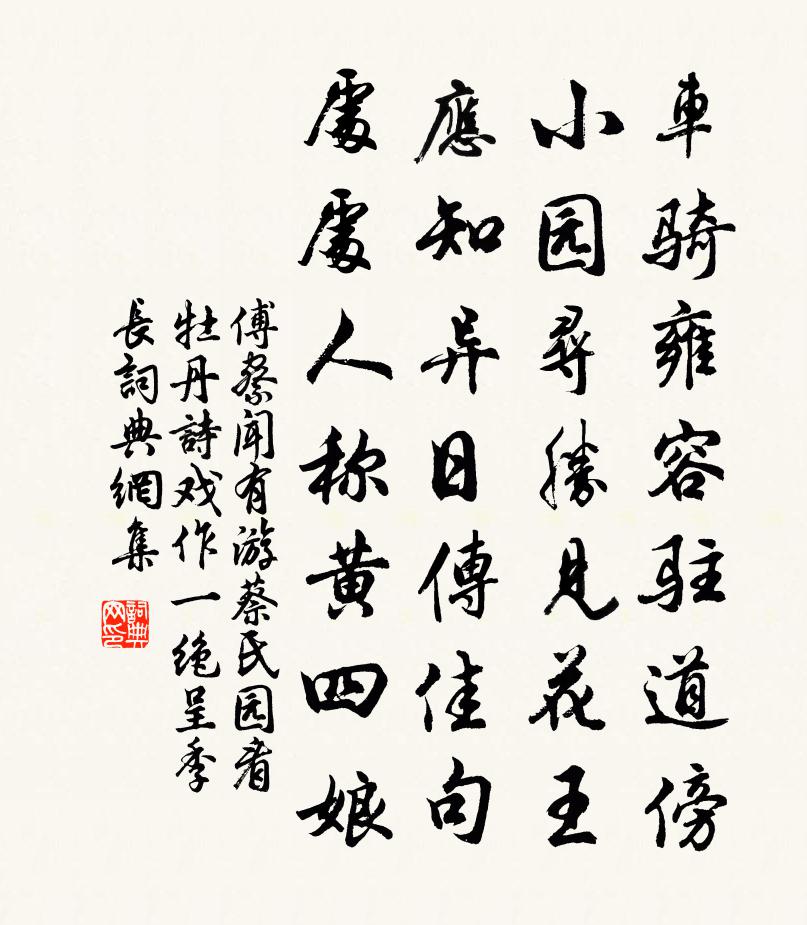 車騎雍容駐道傍
小园尋勝見花王
應知异日傳佳句
處處人称黄四娘
傅察聞有游蔡民园看
牡丹詩戏作一绝呈季
長詞典網集
詞典网印